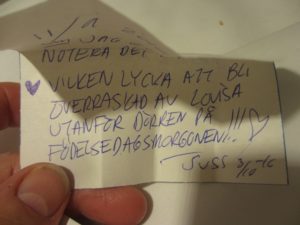 NOTERA DET
VILKEN LYCKA ATT BLI
ÖVERRASKAD AV LOVISA
UTANFÖR DÖRREN PÅ
FÖDELSEDAGSMORGONEN!!!
JUSS 3/10